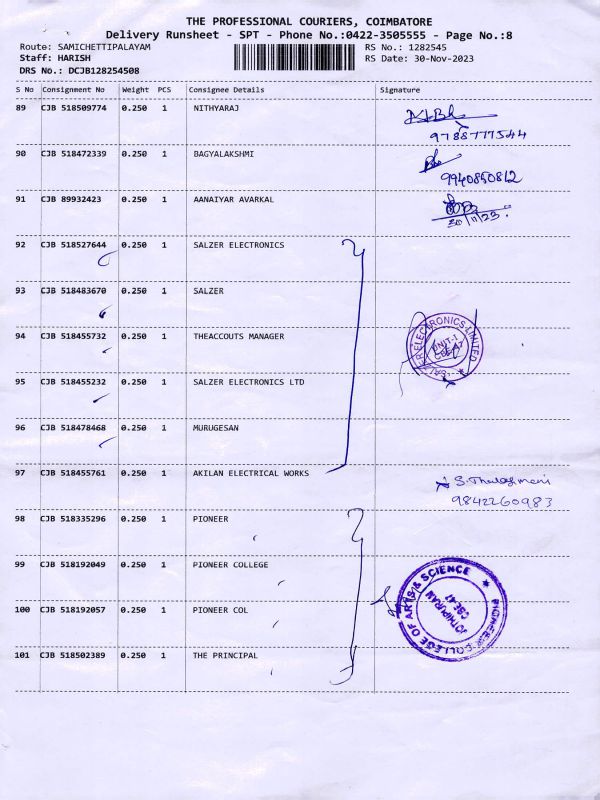 THE PROFESSIONAL COURIERS, COIMBATORE
Delivery Runsheet - SPT - Phone No.:0422-3505555 - Page No.:8
Route: SAMICHETTIPALAYAM RS No.: 1282545
Staff: HARISH RS Date: 30-Nov-2023
DRS No.: DCJB128254508
S No Consignment No Weight PCS Consignee Details Signature
89 CJB 518509774 0.250 1 NITHYARAJ
9788777544
90 CJB 518472339 0.250 1 BAGYALAKSHMI
9940850812
91 CJB 89932423 0.250 1 AANAIYAR AVARKAL
30/11/23.
92 CJB 518527644 0.250 1 SALZER ELECTRONICS
93 CJB 518483670 0.250 1 SALZER
94 CJB 518455732 0.250 1 THEACCOUTS MANAGER
SALZER ELECTRONICS LIMITED
UNIT-1
CBE-47
95 CJB 518455232 0.250 1 SALZER ELECTRONICS LTD
96 CJB 518478468 0.250 1 MURUGESAN
97 CJB 518455761 0.250 1 AKILAN ELECTRICAL WORKS
9842260983
98 CJB 518335296 0.250 1 PIONEER
99 CJB 518192049 0.250 1 PIONEER COLLEGE
100 CJB 518192057 0.250 1 PIONEER COL
PIONEER COLLEGE OF ARTS & SCIENCE
JOTHIPURAM
CBE-47
101 CJB 518502389 0.250 1 THE PRINCIPAL